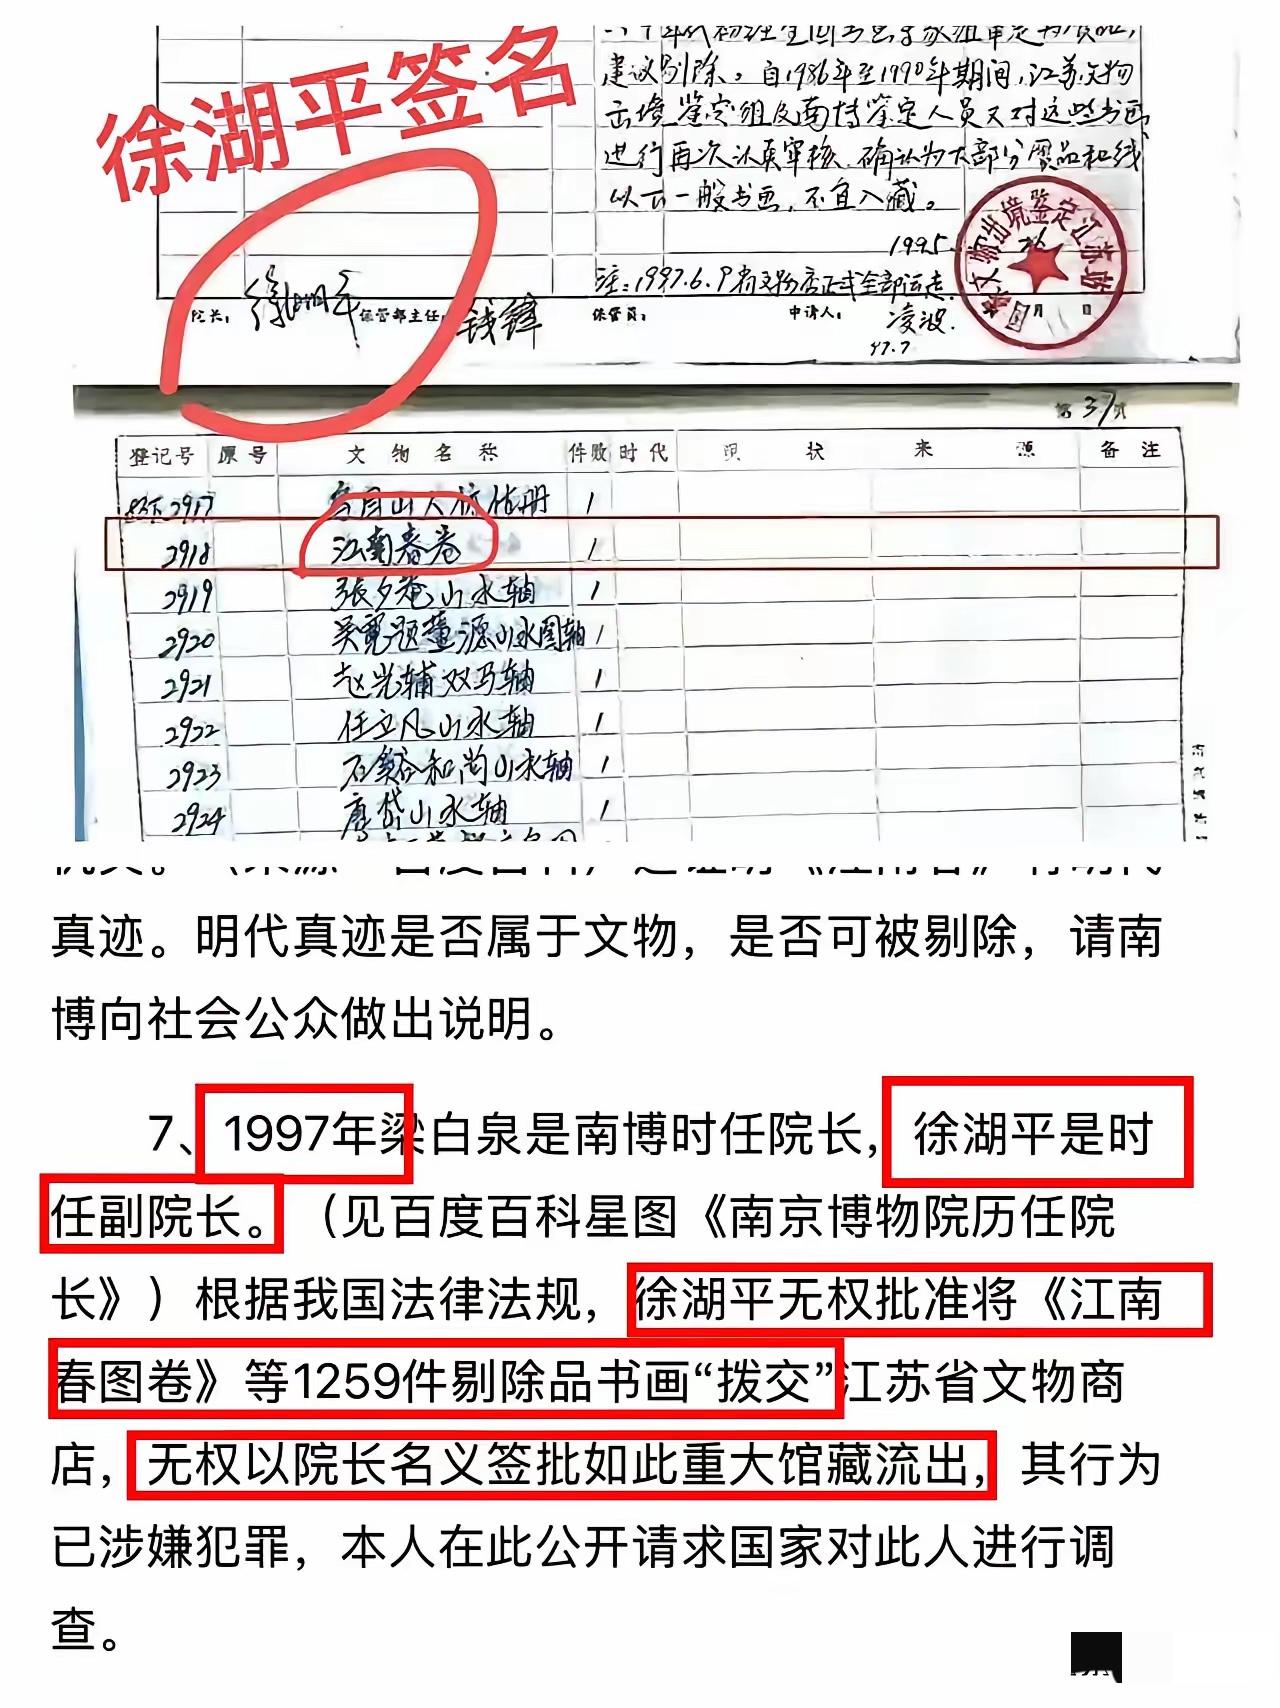 徐湖平签名
建议剔除。自1986年至1990年期间,江苏文物
出境鉴定组及南博鉴定人员又对这些书画
进行再次认真审核,确认为大部分赝品和线
以下一般书画,不宜入藏。
1995
注:1997.6.9
院长: 徐湖平 保管部主任: 钱锋 保管员: 申请人: 凌波.
97.7 月 日
第37页
登记号 原号 文物名称 件数 时代 现状 来源 备注
2917 1
2918 江南春卷 1
2919 張夕菴山水轴 1
2920 吴寬题董源山水图轴 1
2921 赵光辅双马轴 1
2922 任立凡山水轴 1
2923 石溪和尚山水轴 1
2924 唐岱山水轴 1
真迹。明代真迹是否属于文物,是否可被剔除,请南
博向社会公众做出说明。
7、1997年梁白泉是南博时任院长,徐湖平是时
任副院长。(见百度百科星图《南京博物院历任院
长》)根据我国法律法规,徐湖平无权批准将《江南
春图卷》等1259件剔除品书画“拨交”江苏省文物商
店,无权以院长名义签批如此重大馆藏流出,其行为
已涉嫌犯罪,本人在此公开请求国家对此人进行调
查。